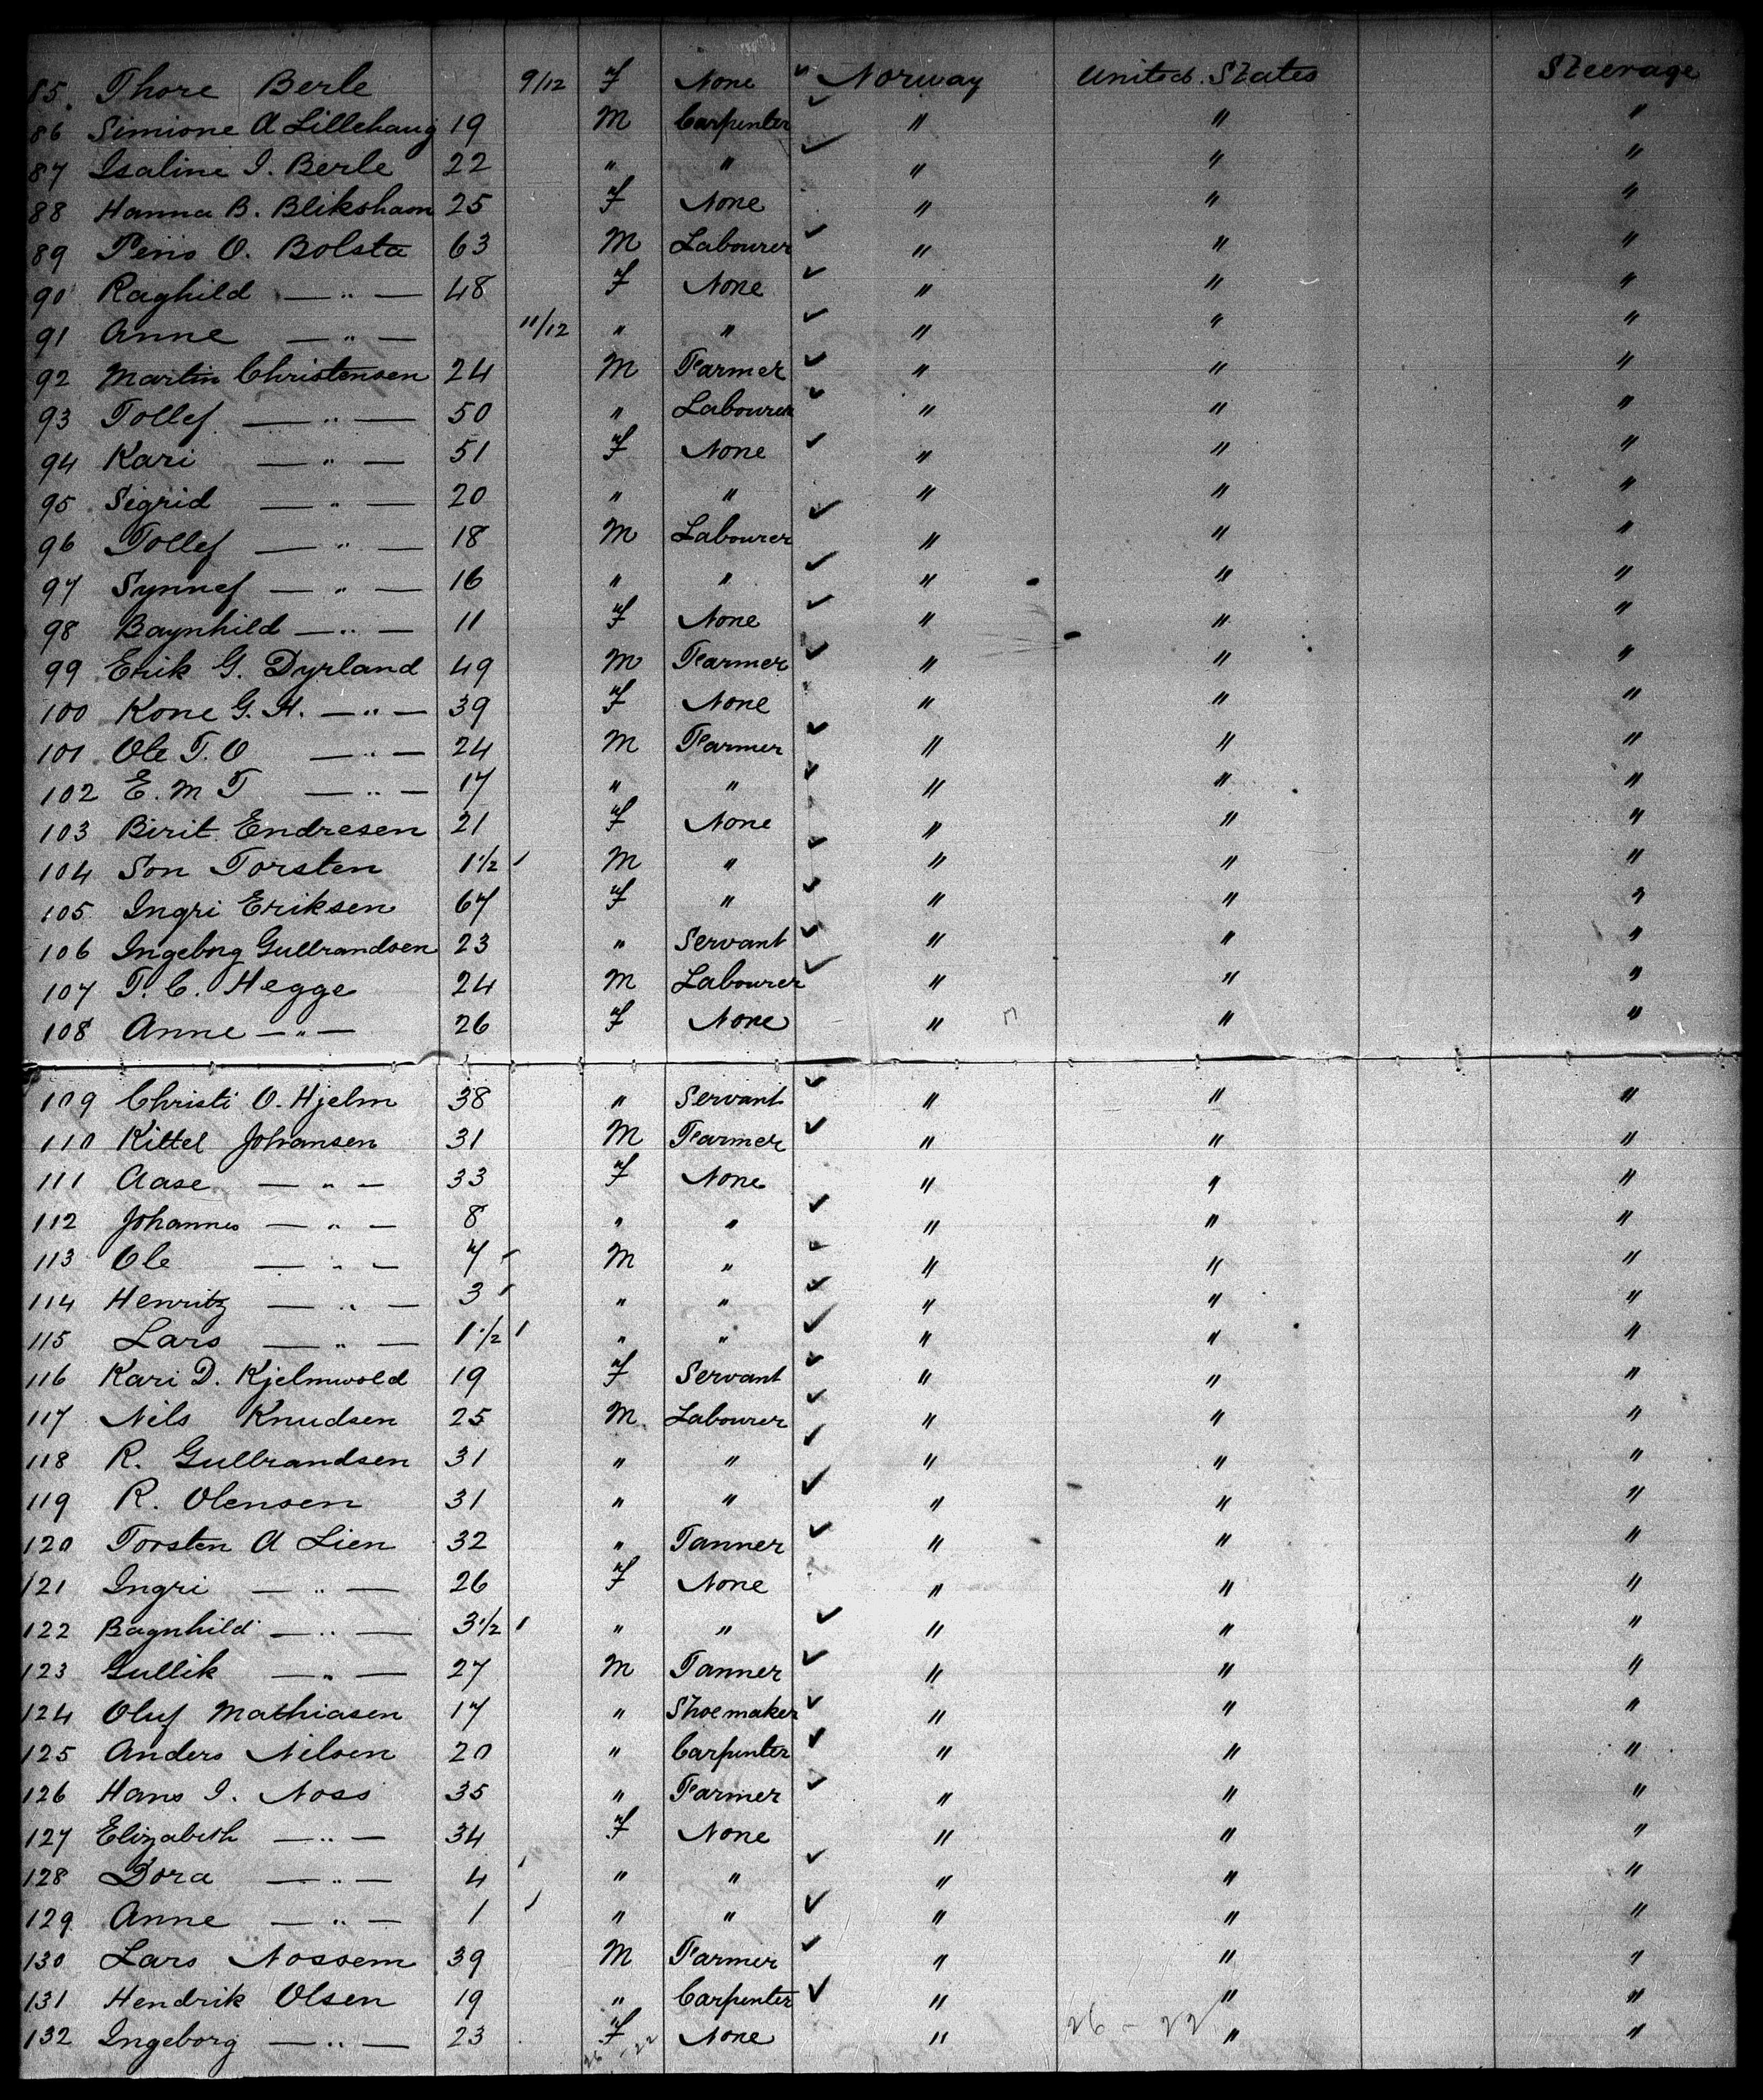 85. Thore Berle 9/12 F None Norway United States Steerage
86 Simione A Lillehaug 19 M Carpenter " " "
87 Isaline I. Berle 22 " " " " "
88 Hanna B. Blikshavn 25 F None " " "
89 Peno O. Bolsta 63 M Labourer " " "
90 Raghild — " — 48 F None " " "
91 Anne — " — 11/12 " " " " "
92 Martin Christensen 24 M Farmer " " "
93 Tollef — " — 50 " Labourer " " "
94 Kari — " — 51 F None " " "
95 Sigrid — " — 20 " " " " "
96 Tollef — " — 18 M Labourer " " "
97 Synnef — " — 16 " " " " "
98 Baynhild — " — 11 F None " " "
99 Erik G. Dyrland 49 M Farmer " " "
100 Kone G. H. — " — 39 F None " " "
101 Ole T. O — " — 24 M Farmer " " "
102 E. M T — " — 17 " " " " "
103 Birit Endresen 21 F None " " "
104 Son Torsten 1 1/2 M " " " "
105 Ingri Eriksen 67 F " " " "
106 Ingeborg Gullbrandsen 23 " Servant " " "
107 T. C. Hegge 24 M Labourer " " "
108 Anne — " — 26 F None " " "
109 Christi O. Hjelm 38 " Servant " " "
110 Kittel Johansen 31 M Farmer " " "
111 Aase — " — 33 F None " " "
112 Johannes — " — 8 " " " " "
113 Ole — " — 7 M " " " "
114 Henritz — " — 3 " " " " "
115 Lars — " — 1 1/2 " " " " "
116 Kari D. Kjelmwold 19 F Servant " " "
117 Nils Knudsen 25 M Labourer " " "
118 R. Gullbrandsen 31 " " " " "
119 R. Olensen 31 " " " " "
120 Torsten A Lien 32 " Tanner " " "
121 Ingri — " — 26 F None " " "
122 Bagnhild — " — 3 1/2 " " " " "
123 Gullik — " — 27 M Tanner " " "
124 Oluf Mathiasen 17 " Shoemaker " " "
125 Anders Nilsen 20 " Carpenter " " "
126 Hans I. Noss 35 " Farmer " " "
127 Elizabeth — " — 34 F None " " "
128 Dora — " — 4 " " " " "
129 Anne — " — 1 " " " " "
130 Lars Nossem 39 M Farmer " " "
131 Hendrik Olsen 19 " Carpenter " " "
132 Ingeborg — " — 23 F None " " "
26 - 22 26 - 22